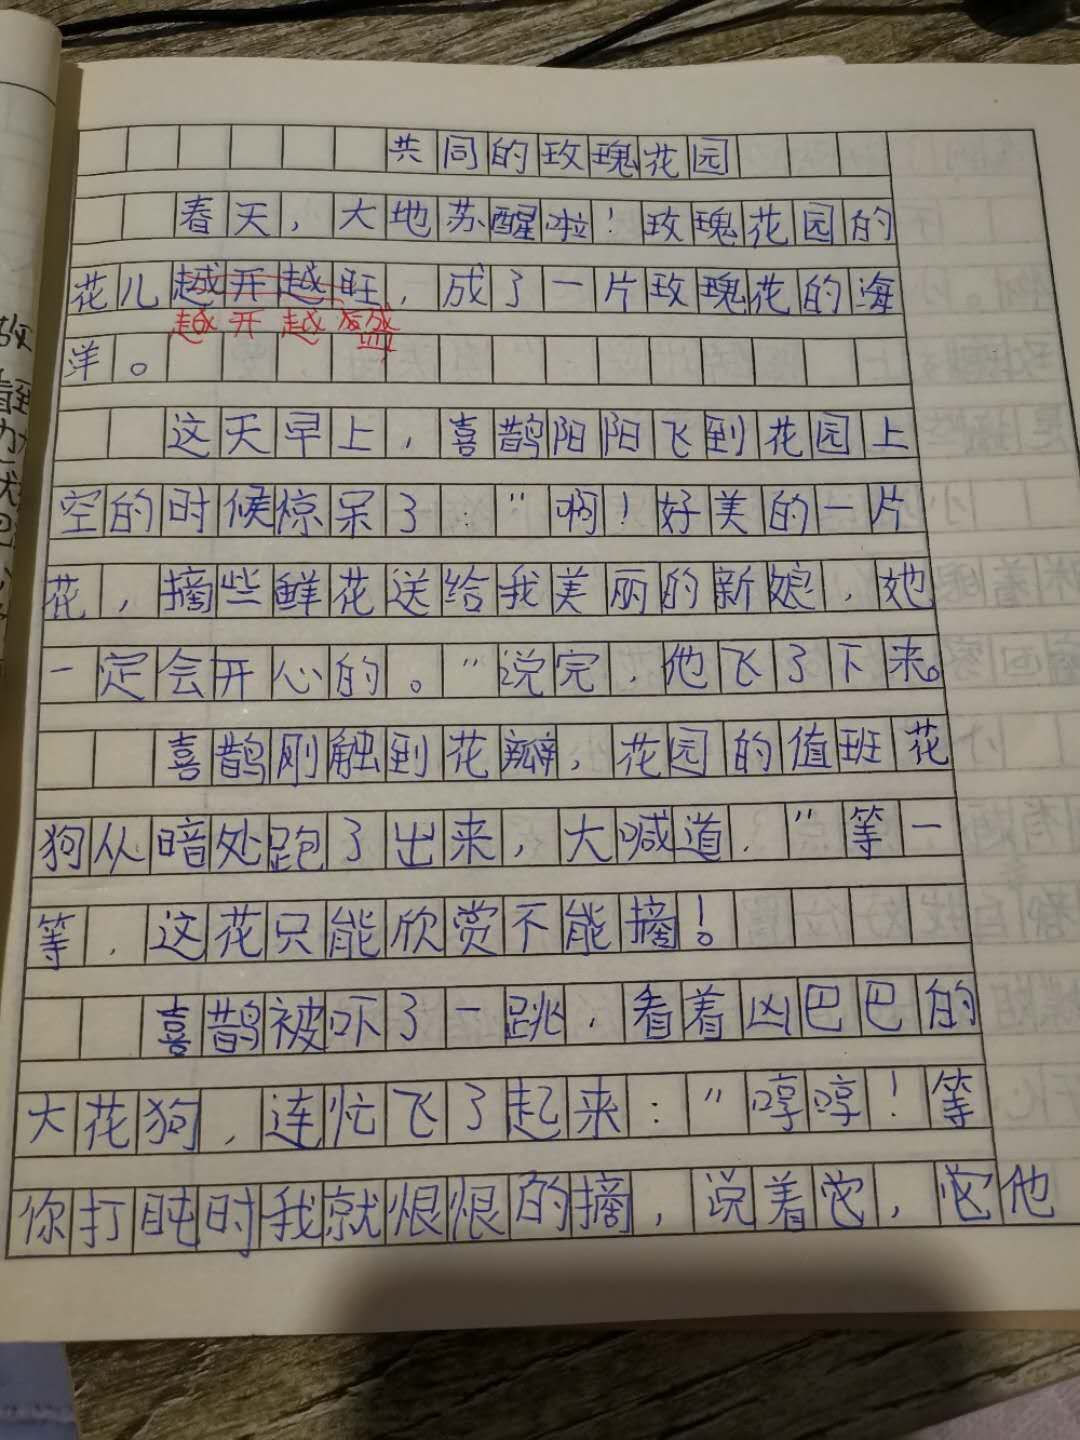 共同的玫瑰花园
春天，大地苏醒啦！玫瑰花园的
花儿越开越旺，成了一片玫瑰花的海
越开越盛
洋。
这天早上，喜鹊阳阳飞到花园上
空的时候惊呆了：“啊！好美的一片
花，摘些鲜花送给我美丽的新娘，她
一定会开心的。”说完，他飞了下来。
喜鹊刚触到花瓣，花园的值班花
狗从暗处跑了出来，大喊道，“等一
等，这花只能欣赏不能摘！。
喜鹊被吓了一跳，看着凶巴巴的
大花狗，连忙飞了起来：“哼哼！等
你打盹时我就恨恨的摘，说着它，它他